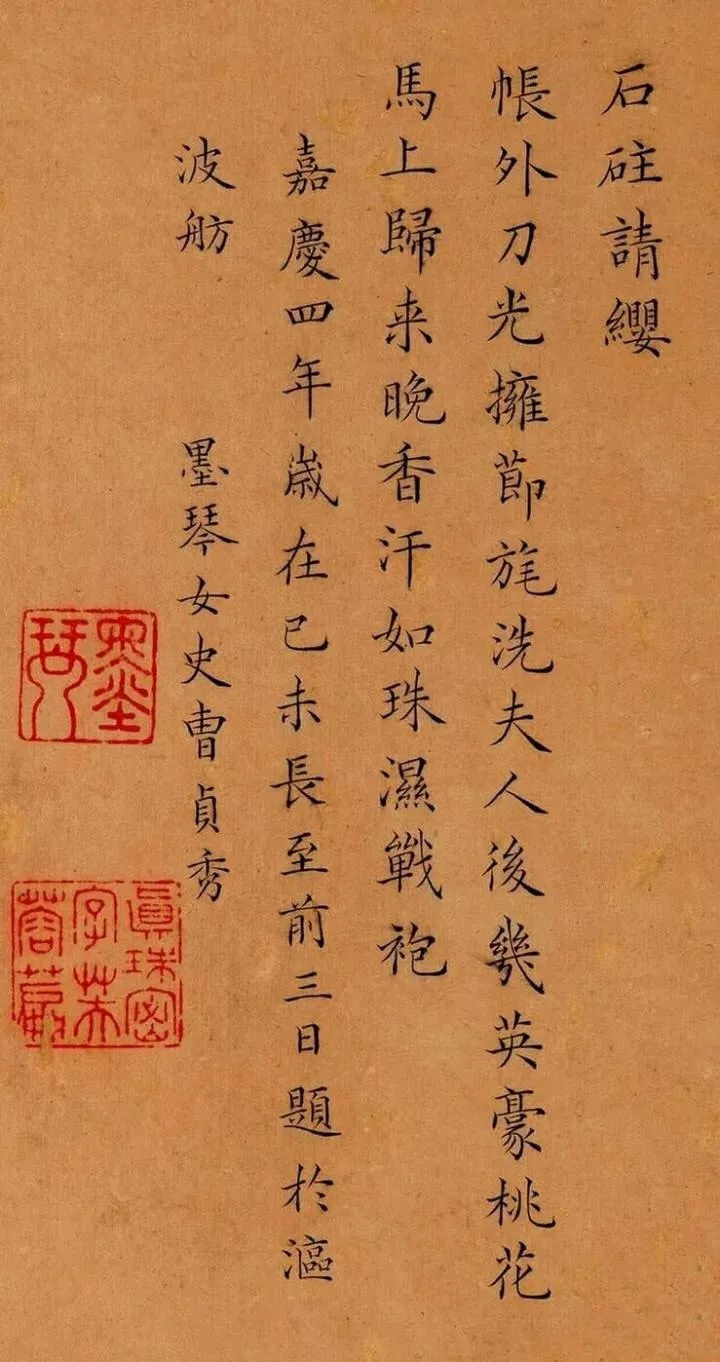 石砫請纓
帳外刀光擁節旄洗夫人後幾英豪桃花
馬上歸来晚香汗如珠濕戰袍
嘉慶四年歲在己未長至前三日題於漚
波舫 墨琴女史曹貞秀
墨琴
眞珠密
字芙
蓉